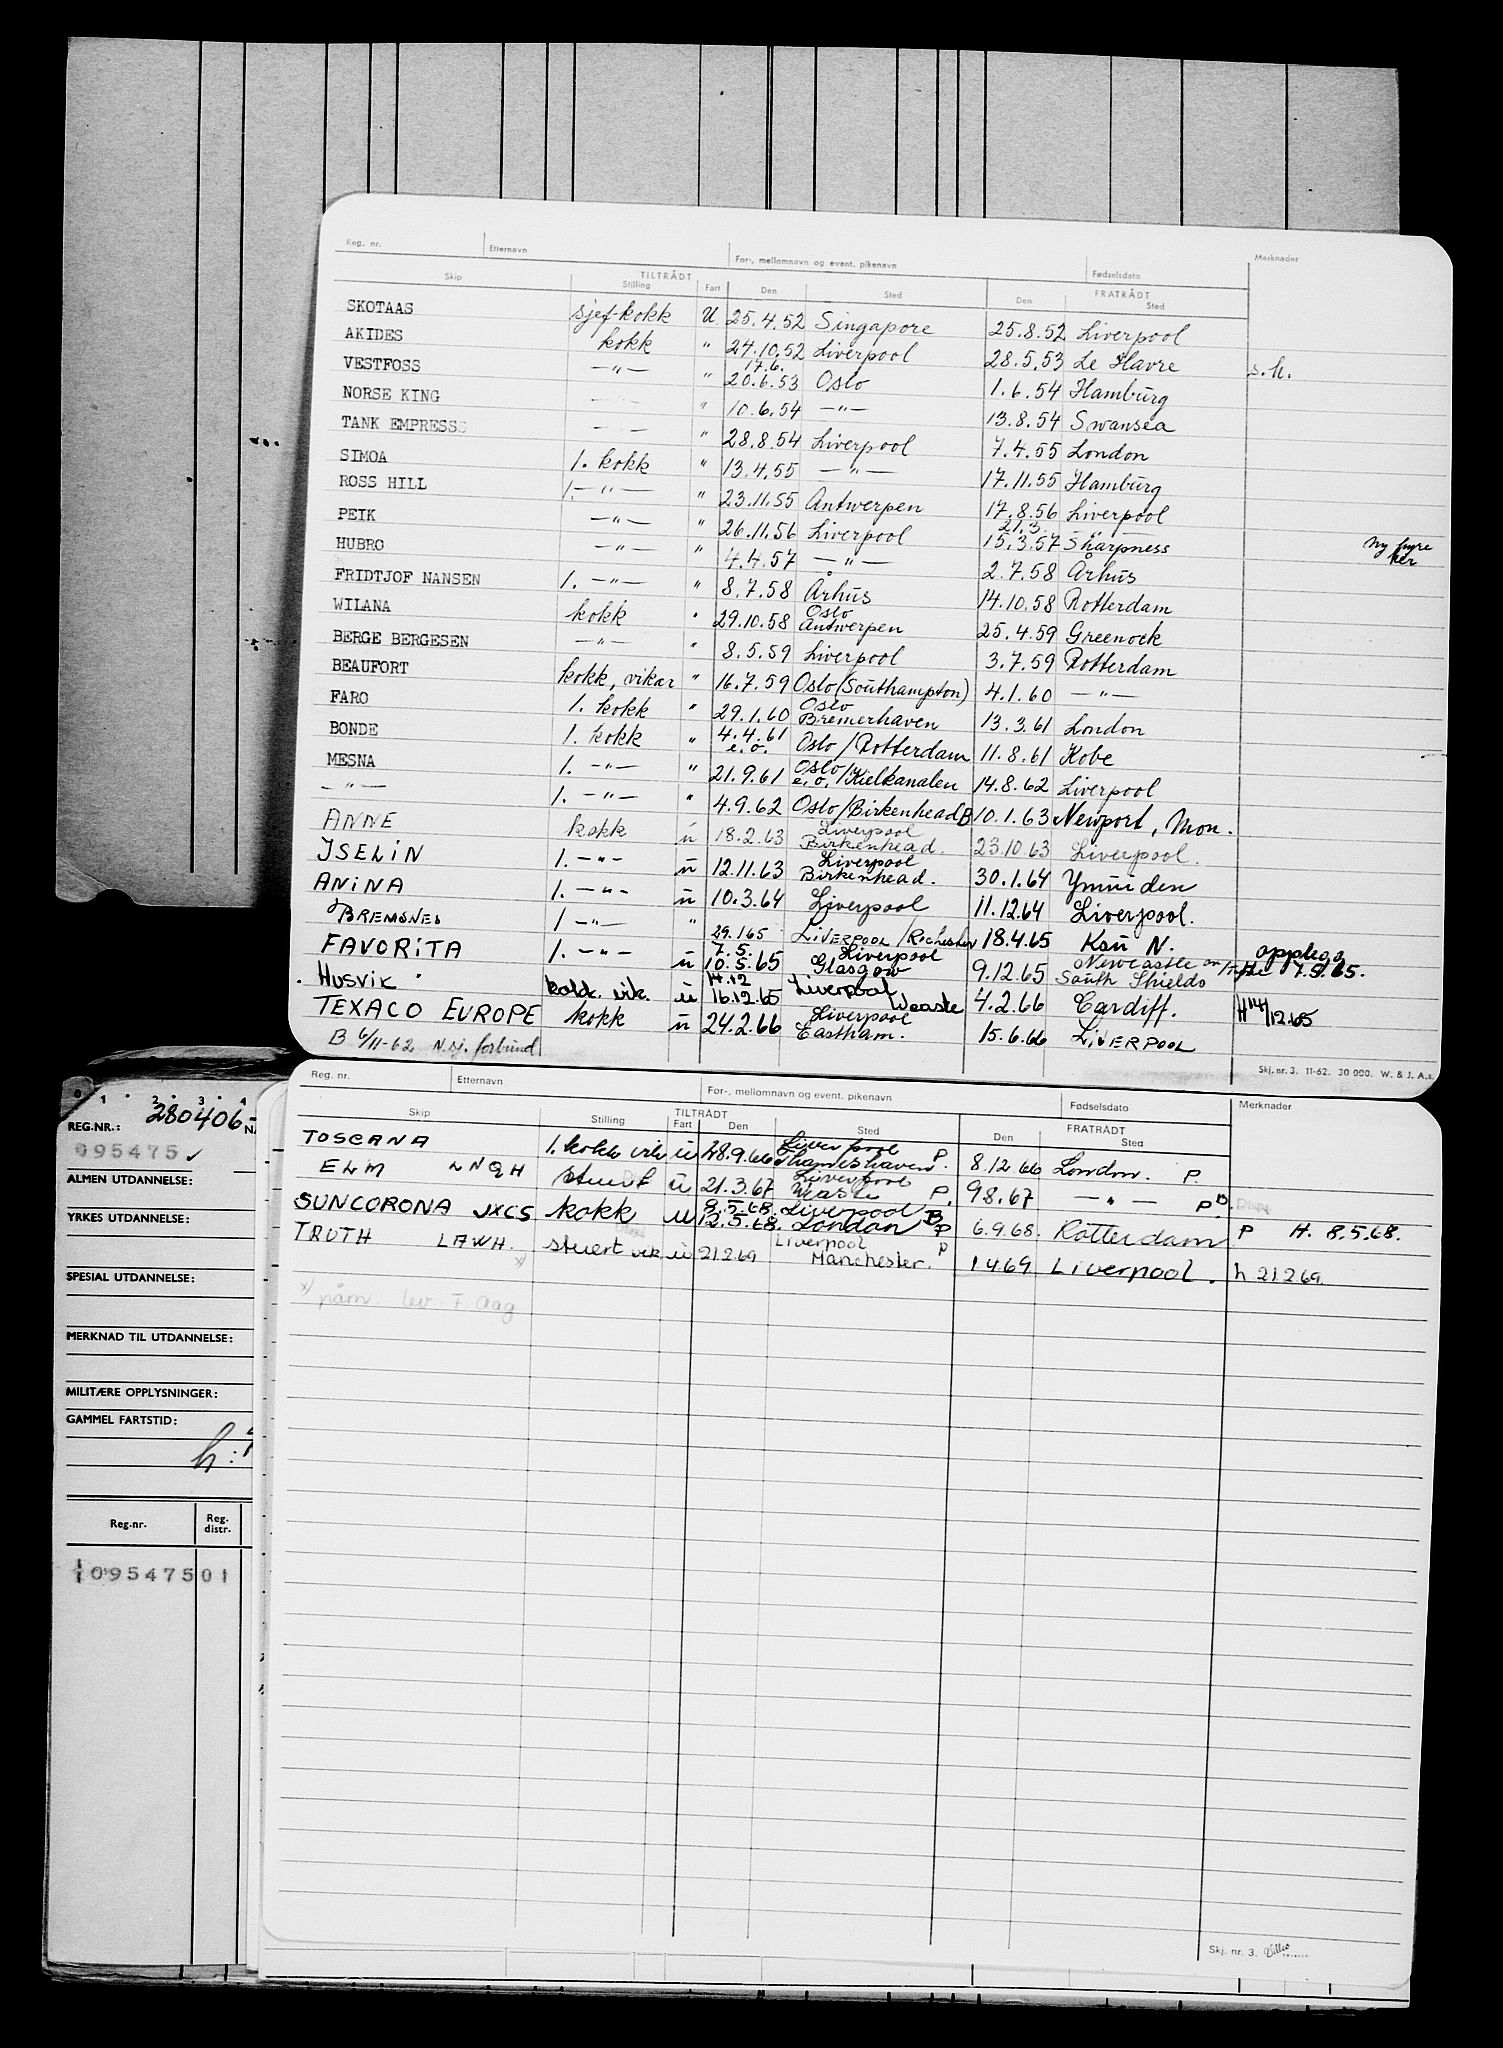 Reg. nr. Etternavn For-, mellomnavn og event. pikenavn Fødselsdato Merknader
Skip TILTRÅDT FRATRÅDT
Stilling Fart Den Sted Den Sted
SKOTAAS sjef-kokk U 25.4.52 Singapore 25.8.52 Liverpool
AKIDES kokk " 24.10.52 Liverpool 28.5.53 Le Havre s.h.
17.6.
VESTFOSS —"— " 20.6.53 Oslo 1.6.54 Hamburg
NORSE KING —"— " 10.6.54 —"— 13.8.54 Swansea
TANK EMPRESSS —"— " 28.8.54 Liverpool 7.4.55 London
SIMOA 1. kokk " 13.4.55 —"— 17.11.55 Hamburg
ROSS HILL 1.—"— " 23.11.55 Antwerpen 17.8.56 Liverpool
21.3. "
PEIK —"— " 26.11.56 Liverpool 15.3.57 Sharpness Ny hyre her
HUBRO —"— " 4.4.57 —"— 2.7.58 Århus
FRIDTJOF NANSEN 1. —"— " 8.7.58 Århus 14.10.58 Rotterdam
Oslo
WILANA kokk " 29.10.58 Antwerpen 25.4.59 Greenock
BERGE BERGESEN —"— " 8.5.59 Liverpool 3.7.59 Rotterdam
BEAUFORT kokk, vikar " 16.7.59 Oslo (Southampton) 4.1.60 —"—
Oslo
FARO 1. kokk " 29.1.60 Bremerhaven 13.3.61 London
BONDE 1. kokk " 4.4.61 e.o. Oslo / Rotterdam 11.8.61 Kobe
MESNA 1. —"— " 21.9.61 Oslo e.o. / Kielkanalen 14.8.62 Liverpool
—"— 1. —"— " 4.9.62 Oslo / Birkenhead B 10.1.63 Newport, Mon.
Liverpool
ANNE kokk u 18.2.63 Birkenhead. 23.10.63 Liverpool.
Liverpool
ISELIN 1. —"— u 12.11.63 Birkenhead. 30.1.64 Ymuiden
ANINA 1. —"— u 10.3.64 Liverpool 11.12.64 Liverpool.
BREMSNES 1 —"— " 29.1.65 LIVERPOOL / Rochester 18.4.65 Ksu N.
7.5. Liverpool Newcastle opplegg
FAVORITA 1. —"— u 10.5.65 Glasgow 9.12.65 South Shields 7.5.65.
14.12 Liverpool
HUSVIK kokk. vik. u 16.12.65 Weaste 4.2.66 Cardiff. H 14/12.65
Liverpool
TEXACO EUROPE kokk u 24.2.66 Eastham. 15.6.66 LIVERPOOL
B 6/11-62 N.sj. forbund
Skj. nr. 3. 11-62. 30 000. W. & J. A.s.
Reg. nr. Etternavn For-, mellomnavn og event. pikenavn Fødselsdato Merknader
Skip TILTRÅDT FRATRÅDT
Stilling Fart Den Sted Den Sted
Liverpool
TOSCANA 1. kokk vik u 28.9.66 Thameshaven. P 8.12.66 London. P
Liverpool
ELM LNQH stuert u 21.3.67 Weaste P. 9.8.67 —"— P B.
8.5.68. Liverpool B
SUNCORONA JXCS kokk u 12.5.68. London P 6.9.68. Rotterdam P H. 8.5.68.
Liverpool
TRUTH LAWH. x) stuert vik. u 21.2.69 Manchester. P 1.4.69 Liverpool. h 21.2.69.
x) påm. lev. F. Aag
Skj. nr. 3.
0 1 2 3 4
REG.NR.: 280406- NA
095475 ✓
ALMEN UTDANNELSE:
YRKES UTDANNELSE:
SPESIAL UTDANNELSE:
MERKNAD TIL UTDANNELSE:
MILITÆRE OPPLYSNINGER:
GAMMEL FARTSTID:
h:
Reg.-nr. Reg. distr.
09547501